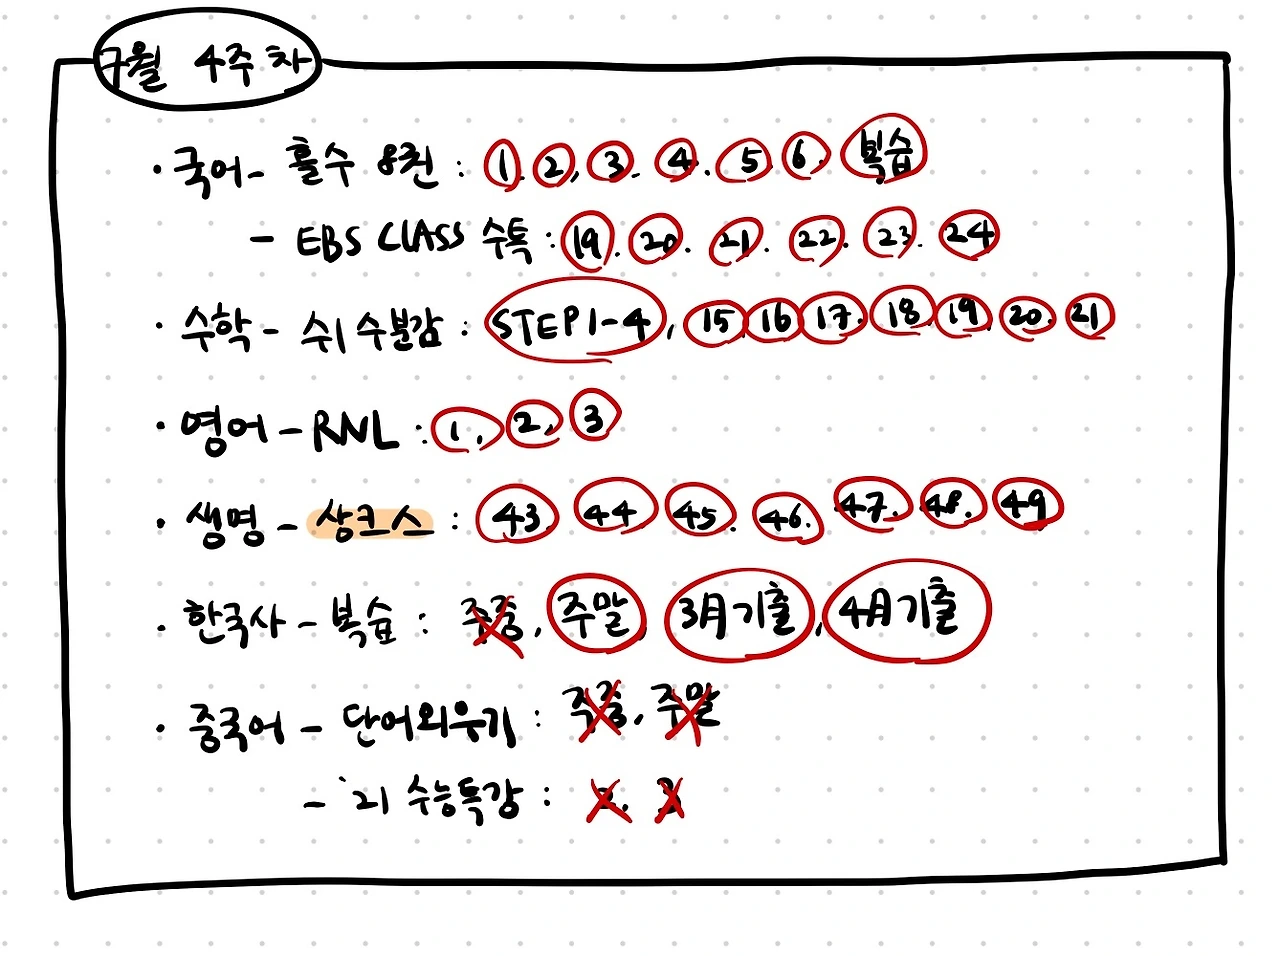 7월 4주차
· 국어 - 홀수 8권 : 1. 2, 3. 4. 5. 6. 복습
- EBS CLASS 수특 : 19. 20. 21. 22. 23. 24
· 수학 - 수1 수분감 : STEP1-4, 15 16 17. 18. 19. 20. 21
· 영어 - RNL : 1, 2, 3
· 생명 - 상크스 : 43. 44. 45. 46. 47. 48. 49
· 한국사 - 복습 : 주중, 주말, 3月기출, 4月기출
· 중국어 - 단어외우기 : 주중, 주말
- '21 수능특강 :